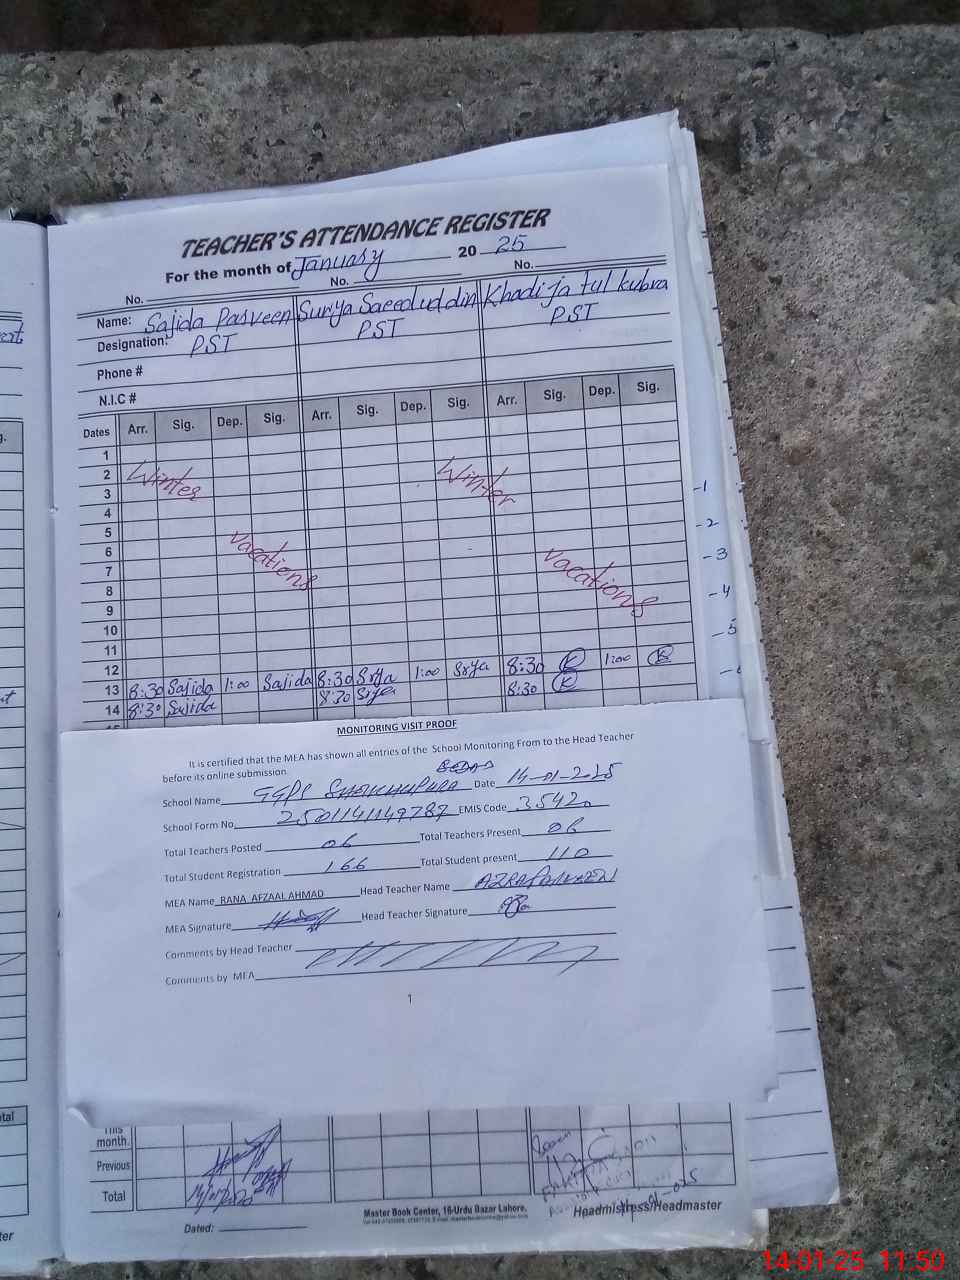 TEACHER'S ATTENDANCE REGISTER
For the month of January 2025
No. No. No.
Name: Sajida Parveen Suriya Saeeduddin Khadija tul kubra
Designation: PST PST PST
Phone #
N.I.C #
Dates Arr. Sig. Dep. Sig. Arr. Sig. Dep. Sig. Arr. Sig. Dep. Sig.
1
2 Winter Winter
3
4
5
6 vacations vacations
7
8
9
10
11
12
13 8:30 Sajida 1:00 Sajida 8:30 Srya 1:00 Srya 8:30 K 1:00 K
14 8:30 Sajida 8:30 Srya 8:30 K
-1
-2
-3
-4
-5
MONITORING VISIT PROOF
It is certified that the MEA has shown all entries of the School Monitoring From to the Head Teacher
before its online submission.
School Name GGPS SHEIKHUPURA Date 14-01-2025
School Form No. 2501141149787 EMIS Code 35420
Total Teachers Posted 06 Total Teachers Present 06
Total Student Registration 166 Total Student present 110
MEA Name RANA AFZAAL AHMAD Head Teacher Name AZRA PARVEEN
MEA Signature Head Teacher Signature
Comments by Head Teacher
Comments by MEA
1
This
month.
Previous
Total
Master Book Center, 16-Urdu Bazar Lahore.
Dated: Headmistress/Headmaster
14-01-25 11:50